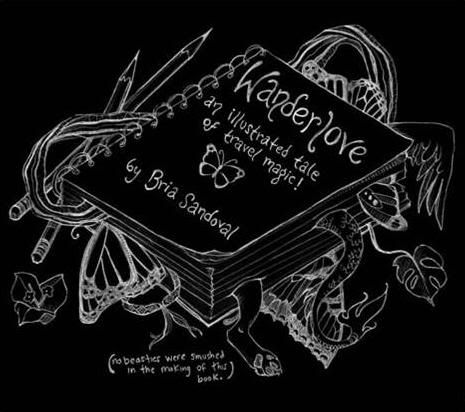 Wanderlove
an illustrated tale
of travel magic!
by Bria Sandoval
(no beasties were smushed
in the making of this
book.)